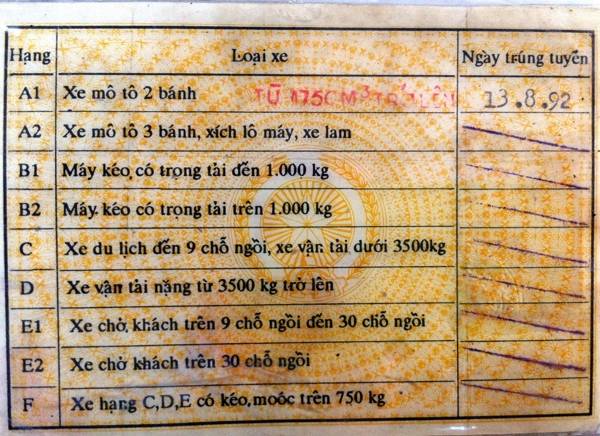 Hạng Loại xe Ngày trúng tuyển
A1 Xe mô tô 2 bánh TỪ 175CM³ TRỞ LÊN 13.8.92
A2 Xe mô tô 3 bánh, xích lô máy, xe lam
B1 Máy kéo có trọng tải đến 1.000 kg
B2 Máy kéo có trọng tải trên 1.000 kg
C Xe du lịch đến 9 chỗ ngồi, xe vận tải dưới 3500kg
D Xe vận tải nặng từ 3500 kg trở lên
E1 Xe chở khách trên 9 chỗ ngồi đến 30 chỗ ngồi
E2 Xe chở khách trên 30 chỗ ngồi
F Xe hạng C,D,E có kéo moóc trên 750 kg